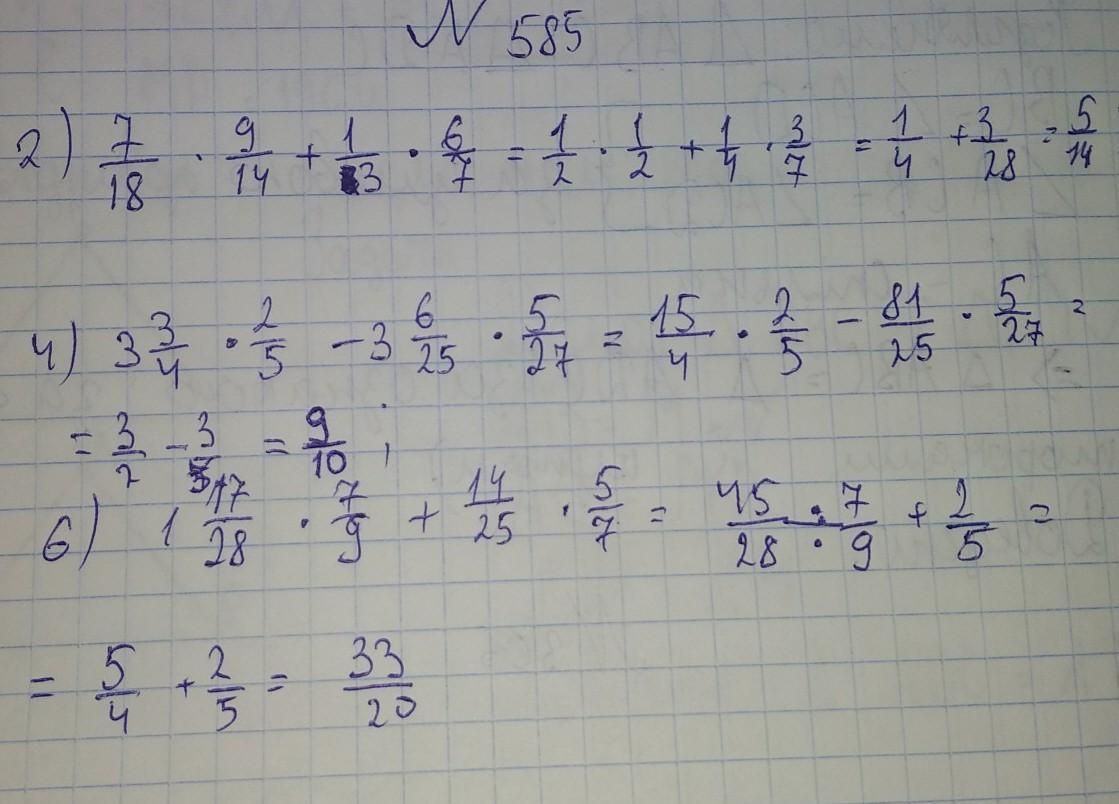 N 585
2) 7/18 · 9/14 + 1/3 · 6/7 = 1/2 · 1/2 + 1/4 · 3/7 = 1/4 + 3/28 = 5/14
4) 3 3/4 · 2/5 - 3 6/25 · 5/27 = 15/4 · 2/5 - 81/25 · 5/27 =
= 3/2 - 3/5 = 9/10 ;
6) 1 17/28 · 7/9 + 14/25 · 5/7 = 45 · 7/28 · 9 + 2/5 =
= 5/4 + 2/5 = 33/20